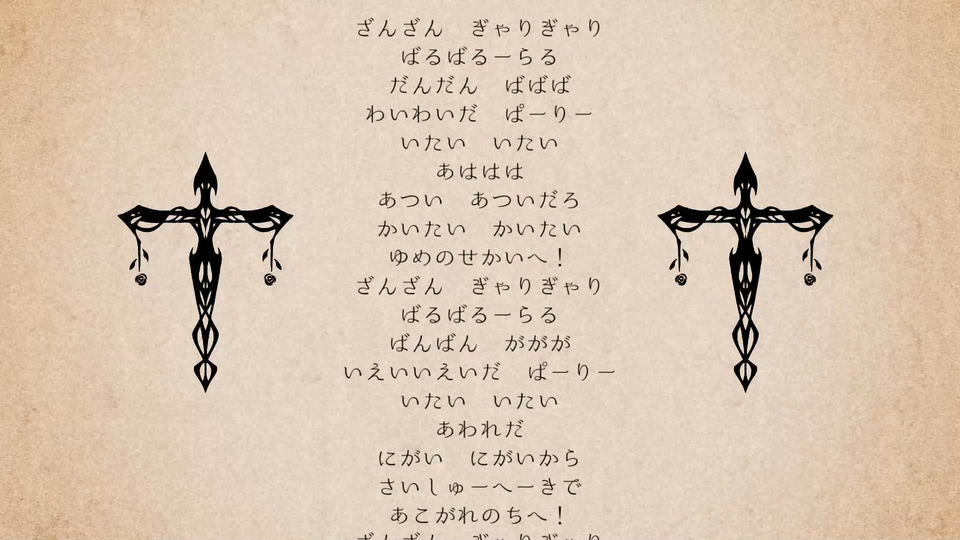 ざんざん　ぎゃりぎゃり
ばるばるーらる
だんだん　ばばば
わいわいだ　ぱーりー
いたい　いたい
あははは
あつい　あついだろ
かいたい　かいたい
ゆめのせかいへ！
ざんざん　ぎゃりぎゃり
ばるばるーらる
ばんばん　ががが
いえいいえいだ　ぱーりー
いたい　いたい
あわれだ
にがい　にがいから
さいしゅーへーきで
あこがれのちへ！
ざんざん　ぎゃりぎゃり